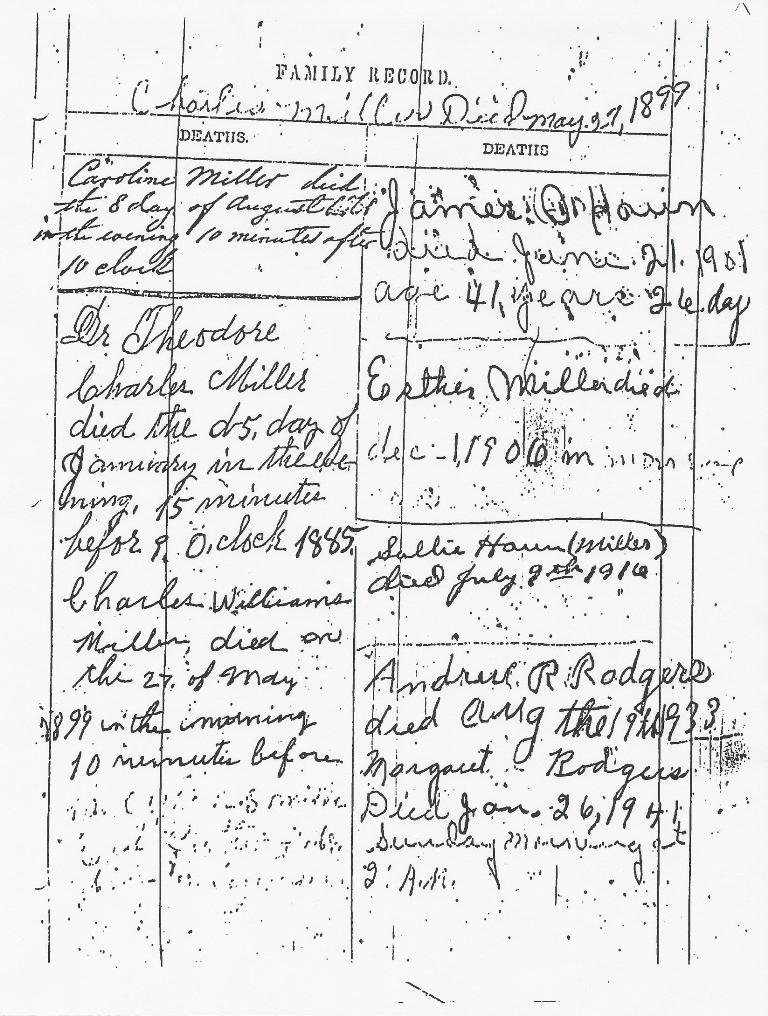 FAMILY RECORD.
Charlie Miller Died May 27, 1899
DEATHS.
Caroline Miller died
the 8 day of August
in the evening 10 minutes after
10 clock
Dr Theodore
Charles Miller
died the 25, day of
January in the eve
ning, 15 minutes
befor 9, O,clock 1885,
Charles Williams
Miller, died on
the 27. of May
1899 in the morning
10 minutes before
DEATHS
James Haun
died June 21. 1901
age 41, years 26. day
Esther Miller died
dec - 1, 1906 in morning
Sallie Haun (Miller)
died July 9th 1916
Andrew R Rodgers
died Aug the 19th 1933
Margaret Rodgers
Died Jan. 26, 1941
Sunday morning at
2 A.M.